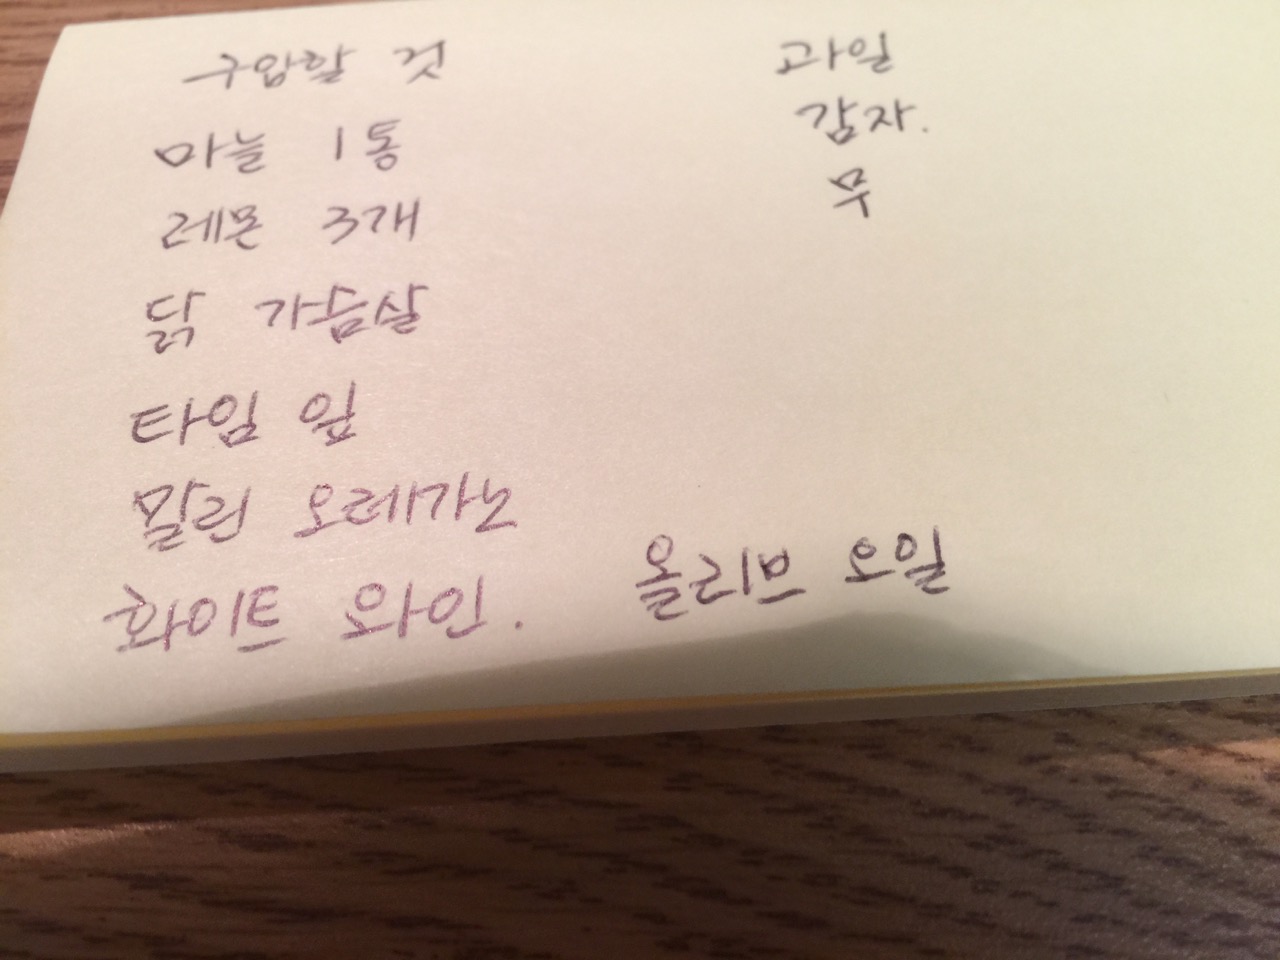 구입할 것
마늘 1통
레몬 3개
닭 가슴살
타임 잎
말린 오레가노
화이트 와인.
과일
감자.
무
올리브 오일